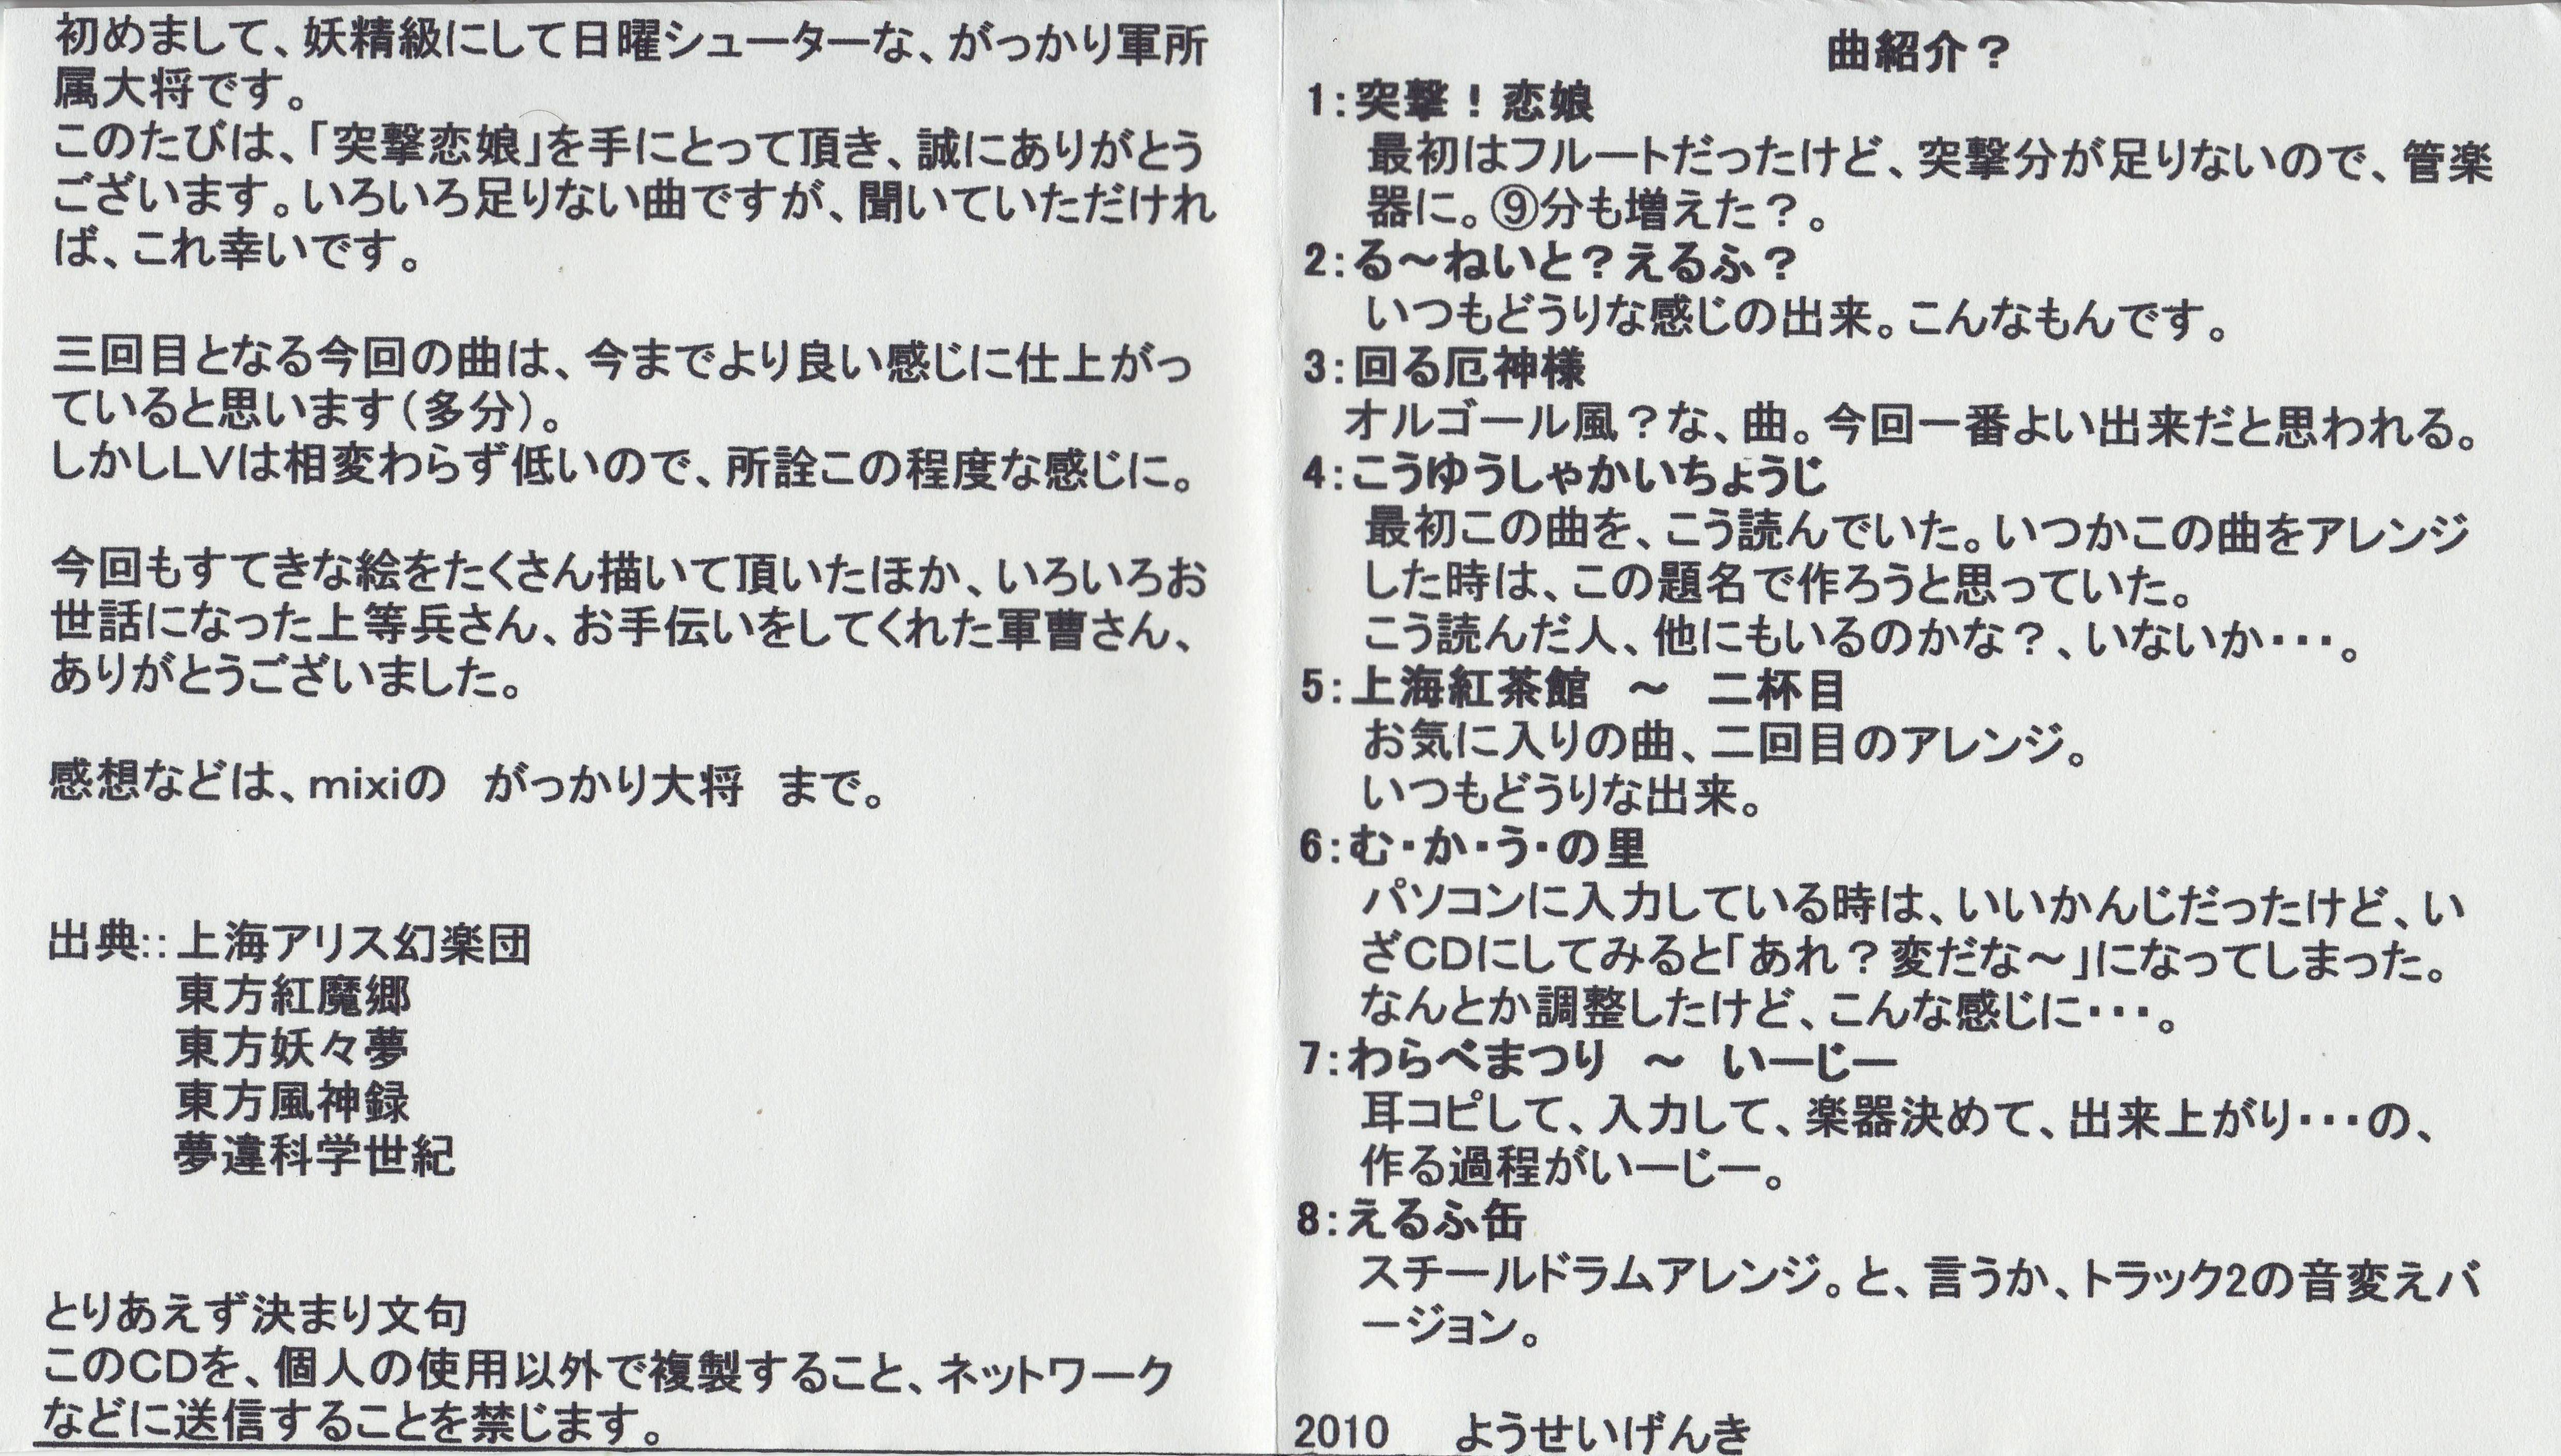 初めまして、妖精級にして日曜シューターな、がっかり軍所
属大将です。
このたびは、「突撃恋娘」を手にとって頂き、誠にありがとう
ございます。いろいろ足りない曲ですが、聞いていただけれ
ば、これ幸いです。
三回目となる今回の曲は、今までより良い感じに仕上がっ
ていると思います（多分）。
しかしLVは相変わらず低いので、所詮この程度な感じに。
今回もすてきな絵をたくさん描いて頂いたほか、いろいろお
世話になった上等兵さん、お手伝いをしてくれた軍曹さん、
ありがとうございました。
感想などは、mixiの　がっかり大将　まで。
出典::上海アリス幻楽団
東方紅魔郷
東方妖々夢
東方風神録
夢違科学世紀
とりあえず決まり文句
このCDを、個人の使用以外で複製すること、ネットワーク
などに送信することを禁じます。
曲紹介？
1:突撃！恋娘
最初はフルートだったけど、突撃分が足りないので、管楽
器に。⑨分も増えた？。
2:る～ねいと？えるふ？
いつもどうりな感じの出来。こんなもんです。
3:回る厄神様
オルゴール風？な、曲。今回一番よい出来だと思われる。
4:こうゆうしゃかいちょうじ
最初この曲を、こう読んでいた。いつかこの曲をアレンジ
した時は、この題名で作ろうと思っていた。
こう読んだ人、他にもいるのかな？、いないか・・・。
5:上海紅茶館　～　二杯目
お気に入りの曲、二回目のアレンジ。
いつもどうりな出来。
6:む・か・う・の里
パソコンに入力している時は、いいかんじだったけど、い
ざCDにしてみると「あれ？変だな～」になってしまった。
なんとか調整したけど、こんな感じに・・・。
7:わらべまつり　～　いーじー
耳コピして、入力して、楽器決めて、出来上がり・・・の、
作る過程がいーじー。
8:えるふ缶
スチールドラムアレンジ。と、言うか、トラック2の音変えバ
ージョン。
2010　ようせいげんき